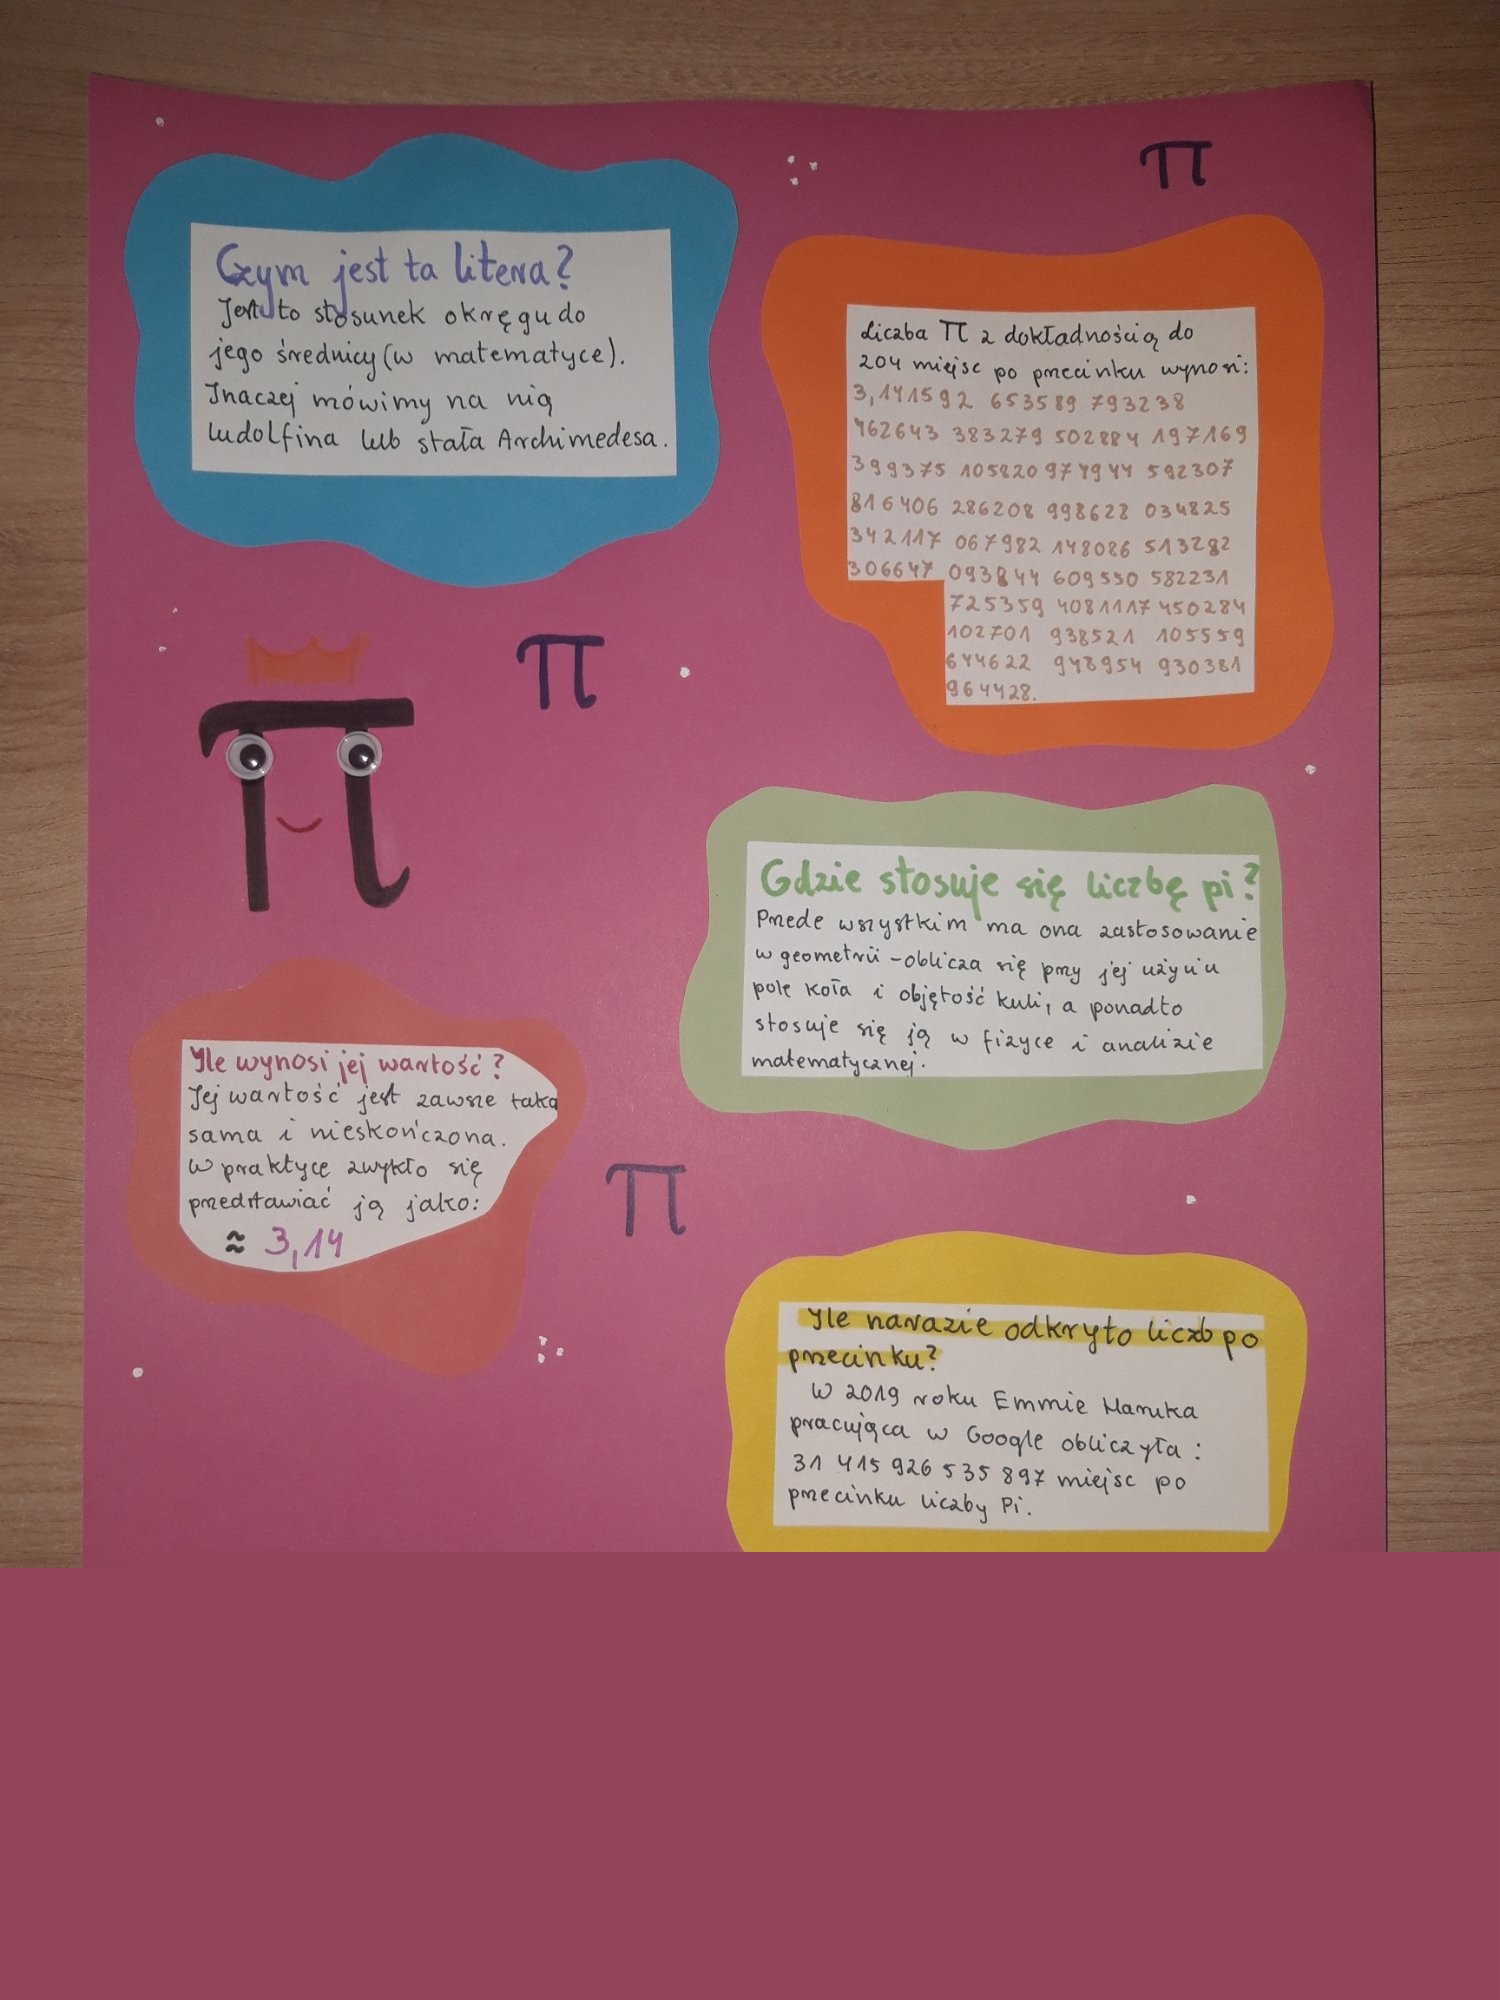 Czym jest ta litera?
Jest to stosunek okręgu do
jego średnicy (w matematyce).
Inaczej mówimy na nią
ludolfina lub stała Archimedesa.
π
Liczba π z dokładnością do
204 miejsc po przecinku wynosi:
3,141592 653589 793238
462643 383279 502884 197169
399375 105820 974944 592307
816406 286208 998628 034825
342117 067982 148086 513282
306647 093844 609550 582231
725359 4081117 450284
102701 938521 105559
644622 948954 930381
964428.
π
π
Gdzie stosuje się liczbę pi?
Przede wszystkim ma ona zastosowanie
w geometrii - oblicza się przy jej użyciu
pole koła i objętość kuli, a ponadto
stosuje się ją w fizyce i analizie
matematycznej.
Ile wynosi jej wartość?
Jej wartość jest zawsze taka
sama i nieskończona.
W praktyce zwykło się
przedstawiać ją jako:
≈ 3,14
π
Ile narazie odkryto liczb po
przecinku?
W 2019 roku Emmie Haruka
pracująca w Google obliczyła:
31 415 926 535 897 miejsc po
przecinku liczby Pi.